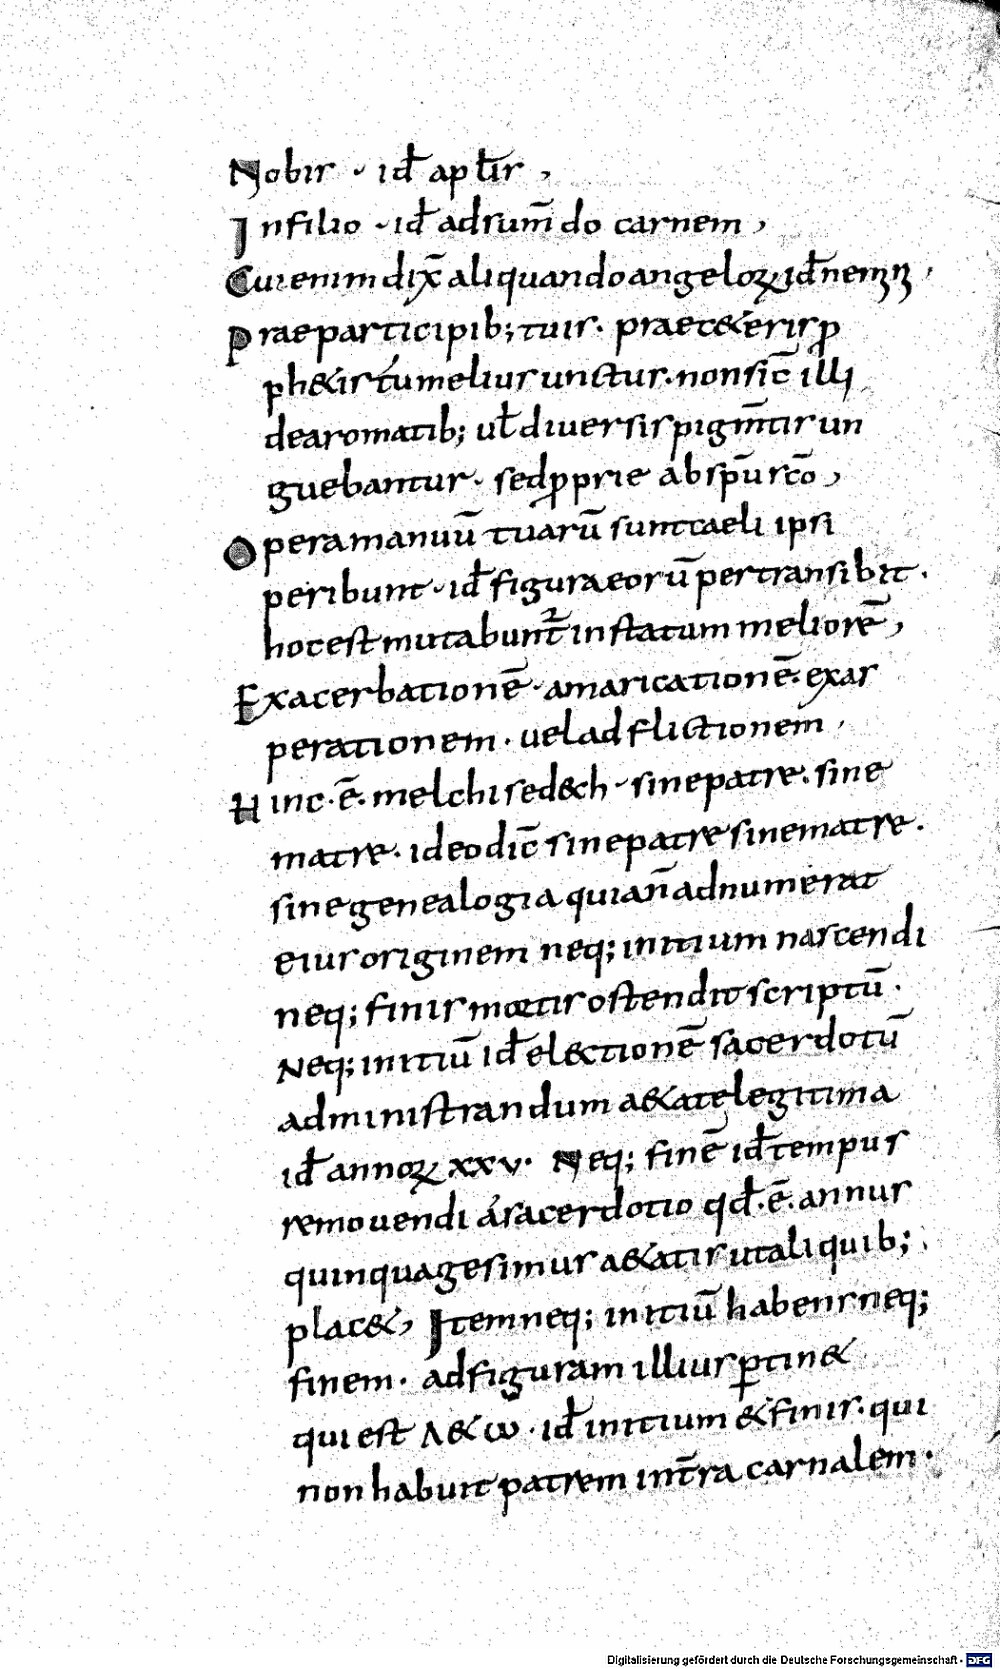 Nobis · id̄ apl̄is,
In filio · id̄ adsum̄do carnem,
Cui enim dix̄ aliquando angeloꝝ id̄ nemini,
Prae participib; tuis · prae cęteris ꝓ
ph&is tu melius unctus · non sic̄ illi
de aromatib; ul̄ diuersis pigm̄tis un
guebantur · sed ꝓprie ab sp̄u sc̄o,
Opera manuū tuarū sunt caeli ipsi
peribunt · id̄ figura eorū pertransibit ·
hoc est mutabunt̄ in statum meliorē,
Exacerbationē · amaricationē · exas
perationem · uel adflictionem ,
Hinc · ē · melchised&h · sine patre · sine
matre · ideo dic̄ sine patre sine matre ·
sine genealogia quia n̄ adnumerat
eius originem neq; initium nascendi
neq; finis mortis ostendit scriptū ·
Neq; initiū id̄ el&ctionē sacerdotū
administrandum a&ate legitima
id̄ annoꝝ xxv · Neq; finē id̄ tempus
remouendi a sacerdotio qd̄ · ē · annus
quinquagesimus a&atis ut aliquib;
plac&, Item neq; initiū habens neq;
finem · ad figuram illius ꝑtin&
qui est Λ & ω · id̄ initium & finis · qui
non habuit patrem in t̄ra carnalem ·
Digitalisierung gefördert durch die Deutsche Forschungsgemeinschaft - DFG